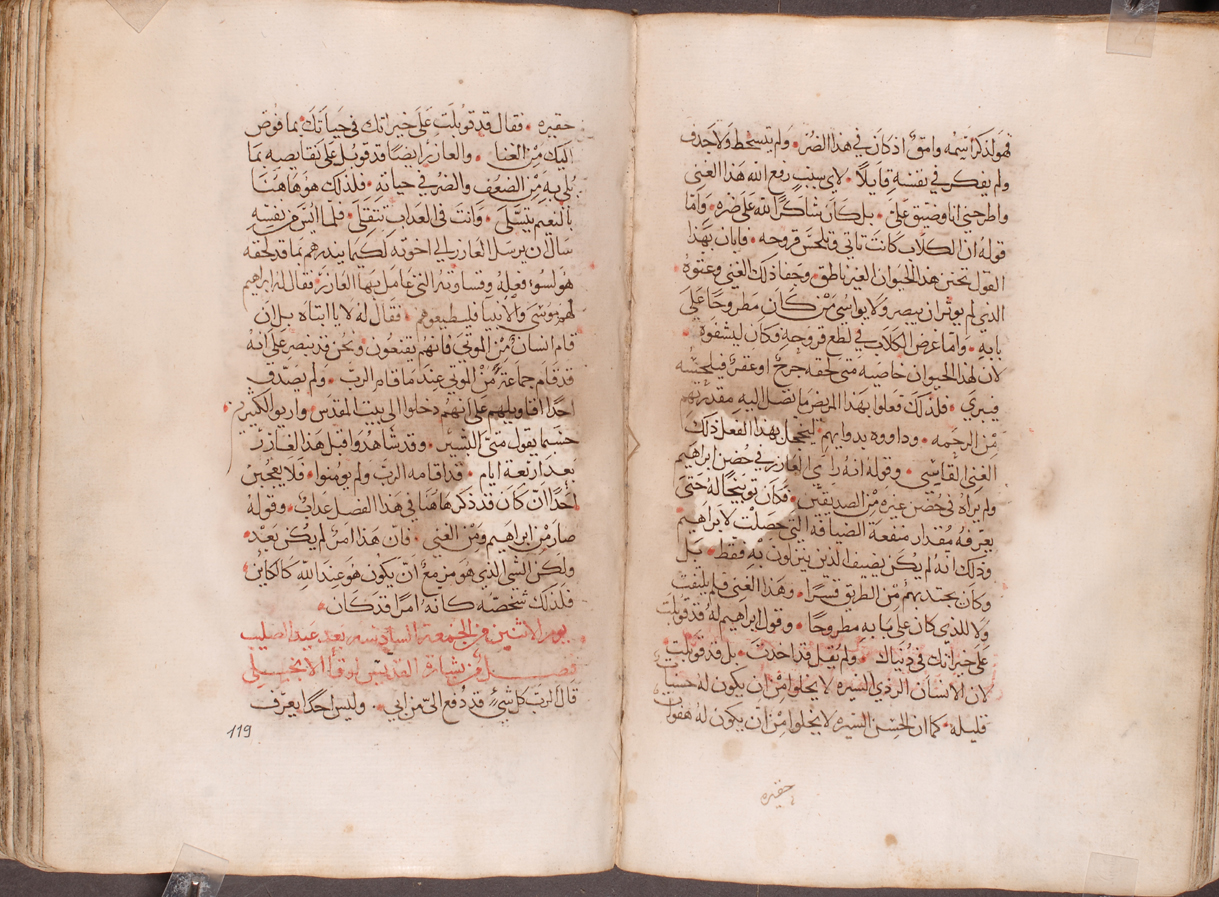 فهو لذكر اسمه وامق اذ كان في هذا الضر • ولم يتسخط ولا جدف
ولم يفكر في نفسه قايلاً • لاي سبب رفع الله هذا الغنى
واطرحني انا وضيق علي • بل كان شاكرا لله على ضره • واما
قوله ان الكلاب كانت تاتي وتلحس قروحه • فابان بهذا
القول تحنن هذا الحيوان الغير ناطق • وجفا ذلك الغني وعتوه •
الذي لم يوثر ان يبصر ولا يواسي من كان مطروحا على
بابه • واما غرض الكلاب في لطع قروحه فكان ليشفوه •
لان لهذا الحيوان خاصيه متى لحقه جرح او عقر فيلحسه
فيبري • فلذلك فعلوا بهذا المريض ما تصل اليه مقدرتهم
من الرحمه • وداووه بدوايهم • ليخجل بهذا الفعل ذلك
الغني القاسي • وقوله انه راي العازر في حضن ابراهيم
ولم يراه في حضن غيره من الصديقين • فكان توبيخا له حتى
يعرفه مقدار منفعة الضيافه التي حصلت لابراهيم
وذلك انه لم يكن يضيف الذين ينزلون به فقط • بل
وكان يجتذبهم من الطريق قسرا • وهذا الغني فلم يلتفت
ولا للذي كان على بابه مطروحا • وقول ابراهيم له قد قوبلت
على خيراتك في دنياك • ولم يقل قد اخذت • بل قد قوبلت
لان الانسان الردي السيره لا يخلوا من ان يكون له حسنات
قليله • كما ان الحسن السيره لا يخلوا من ان يكون له هفوات
حقيره
حقيره • فقال قد قوبلت على خيراتك في حياتك • بما فوض
اليك من الغنا • والعازر ايضا قد قوبل على نقايصه بما
بلي به من الضعف والضر في حياته • فلذلك هو هاهنا
بالنعيم يتسلى • وانت في العذاب تتقلى • فلما ايس من نفسه
سال ان يرسل العازر الى اخوته لكيما ينذرهم بما قد لحقه
هو لسوء فعله وقساوته التي عامل بها العازر • فقال له ابراهيم
لهم موسى والانبيا فليطيعوهم • فقال له لا يا ابتاه بل ان
قام انسان من الموتى فانهم يقنعون • ونحن قد نبصر على انه
قد قام جماعة من الموتى عندما قام الرب • ولم يصدق
احدا اقاويلهم على انهم دخلوا الى بيت المقدس • واريوا لكثيرين
حسبما يقول متى البشير • وقد شاهدوا قبل هذا لعازر
بعد اربعة ايام • قد اقامه الرب ولم يومنوا • فلا يعجبن
احدا ان كان قد ذكر هاهنا في هذا الفصل عذاب • وقوله
صار من ابراهيم ومن الغني • فان هذا امر لم يكن بعد •
ولكن الشي الذي هو مزمع ان يكون هو عند الله كالكاين •
فلذلك شخصه كانه امرا قد كان •
يوم الاثنين من الجمعة السادسه بعد عيد الصليب
فصل من بشارة القديس لوقا الانجيلي
قال الرب كل شيء قد دفع الي من ابي • وليس احدا يعرف
119